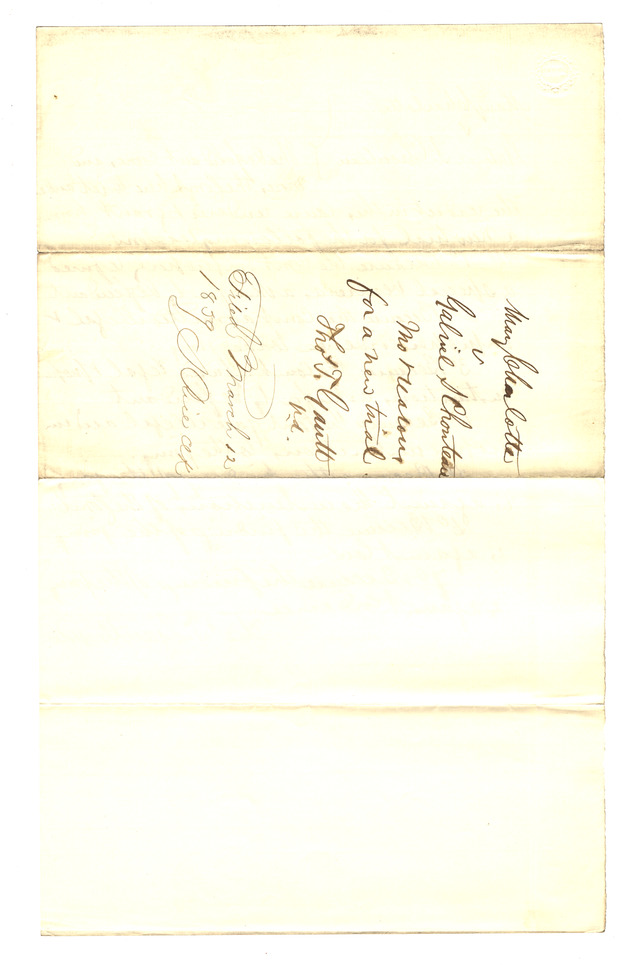 Mary Charlotte
v
Gabriel S Chouteau
Mo & reasons
for a new trial.
Tho. T. Gantt
p.d.
Filed March 12
1859
S Rice Clk